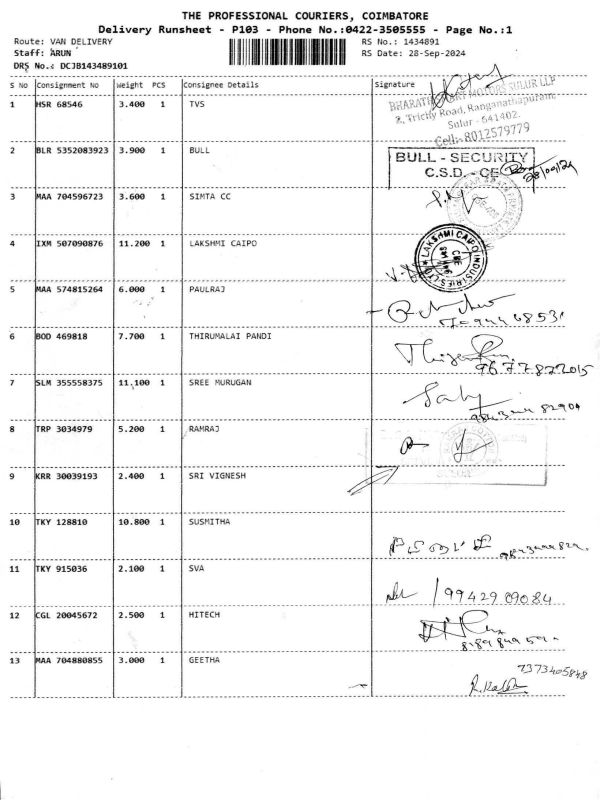 THE PROFESSIONAL COURIERS, COIMBATORE
Delivery Runsheet - P103 - Phone No.:0422-3505555 - Page No.:1
Route: VAN DELIVERY RS No.: 1434891
Staff: ARUN RS Date: 28-Sep-2024
DRS No.: DCJB143489101
S No Consignment No Weight PCS Consignee Details Signature
1 HSR 68546 3.400 1 TVS
2, Trichy Road, Ranganathapuram,
Sulur - 641402.
Cell:- 8012579779
2 BLR 5352083923 3.900 1 BULL BULL - SECURITY
C.S.D. - CBE 28/09/24
3 MAA 704596723 3.600 1 SIMTA CC
4 IXM 507090876 11.200 1 LAKSHMI CAIPO LAKSHMI CAIPO INDUSTRIES LTD
5 MAA 574815264 6.000 1 PAULRAJ
6 BOD 469818 7.700 1 THIRUMALAI PANDI
9677822015
7 SLM 355558375 11.100 1 SREE MURUGAN
8 TRP 3034979 5.200 1 RAMRAJ
9 KRR 30039193 2.400 1 SRI VIGNESH
10 TKY 128810 10.800 1 SUSMITHA
11 TKY 915036 2.100 1 SVA 9942909084
12 CGL 20045672 2.500 1 HITECH
13 MAA 704880855 3.000 1 GEETHA 7373405848